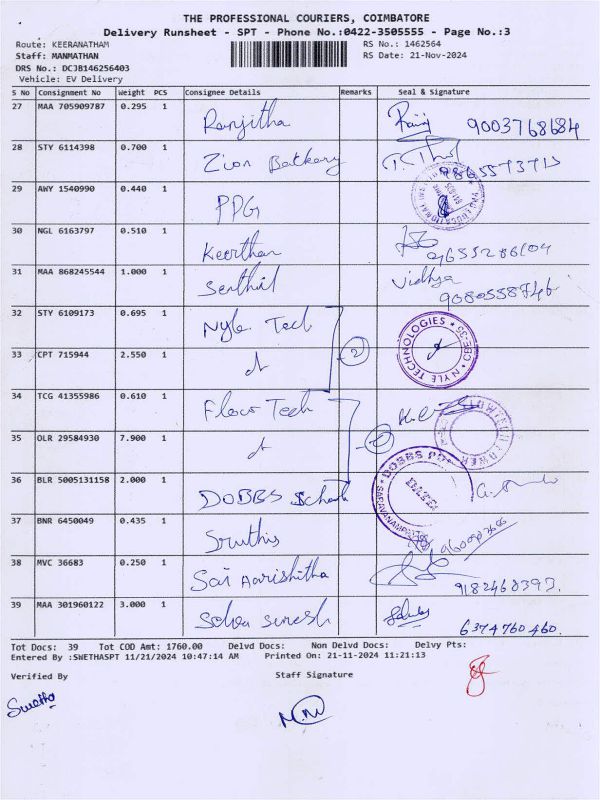 THE PROFESSIONAL COURIERS, COIMBATORE
Delivery Runsheet - SPT - Phone No.:0422-3505555 - Page No.:3
Route: KEERANATHAM RS No.: 1462564
Staff: MANMATHAN RS Date: 21-Nov-2024
DRS No.: DCJB146256403
Vehicle: EV Delivery
S No Consignment No Weight PCS Consignee Details Remarks Seal & Signature
27 MAA 705909787 0.295 1 Ranjitha 9003768684
28 STY 6114398 0.700 1 Zion
29 AWY 1540990 0.440 1 PPG
30 NGL 6163797 0.510 1 Keerthan
31 MAA 868245544 1.000 1 Senthil Vidhya
32 STY 6109173 0.695 1 Nyle Tech
33 CPT 715944 2.550 1 2 NYLE TECHNOLOGIES CBE-35
34 TCG 41355986 0.610 1 Tech
35 OLR 29584930 7.900 1
36 BLR 5005131158 2.000 1 DOBBS DOBBS
37 BNR 6450049 0.435 1
38 MVC 36683 0.250 1 Sai Aarishitha 9182468393.
39 MAA 301960122 3.000 1 Selva suresh 6374760460.
Tot Docs: 39 Tot COD Amt: 1760.00 Delvd Docs: Non Delvd Docs: Delvy Pts:
Entered By :SWETHASPT 11/21/2024 10:47:14 AM Printed On: 21-11-2024 11:21:13
Verified By Staff Signature
Swetha